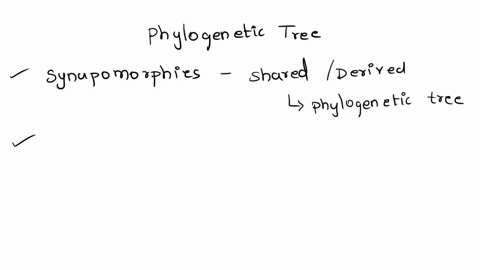 Phylogenetic Tree
✓ Synupomorphies - shared / Derived
↳ phylogenetic tree
✓